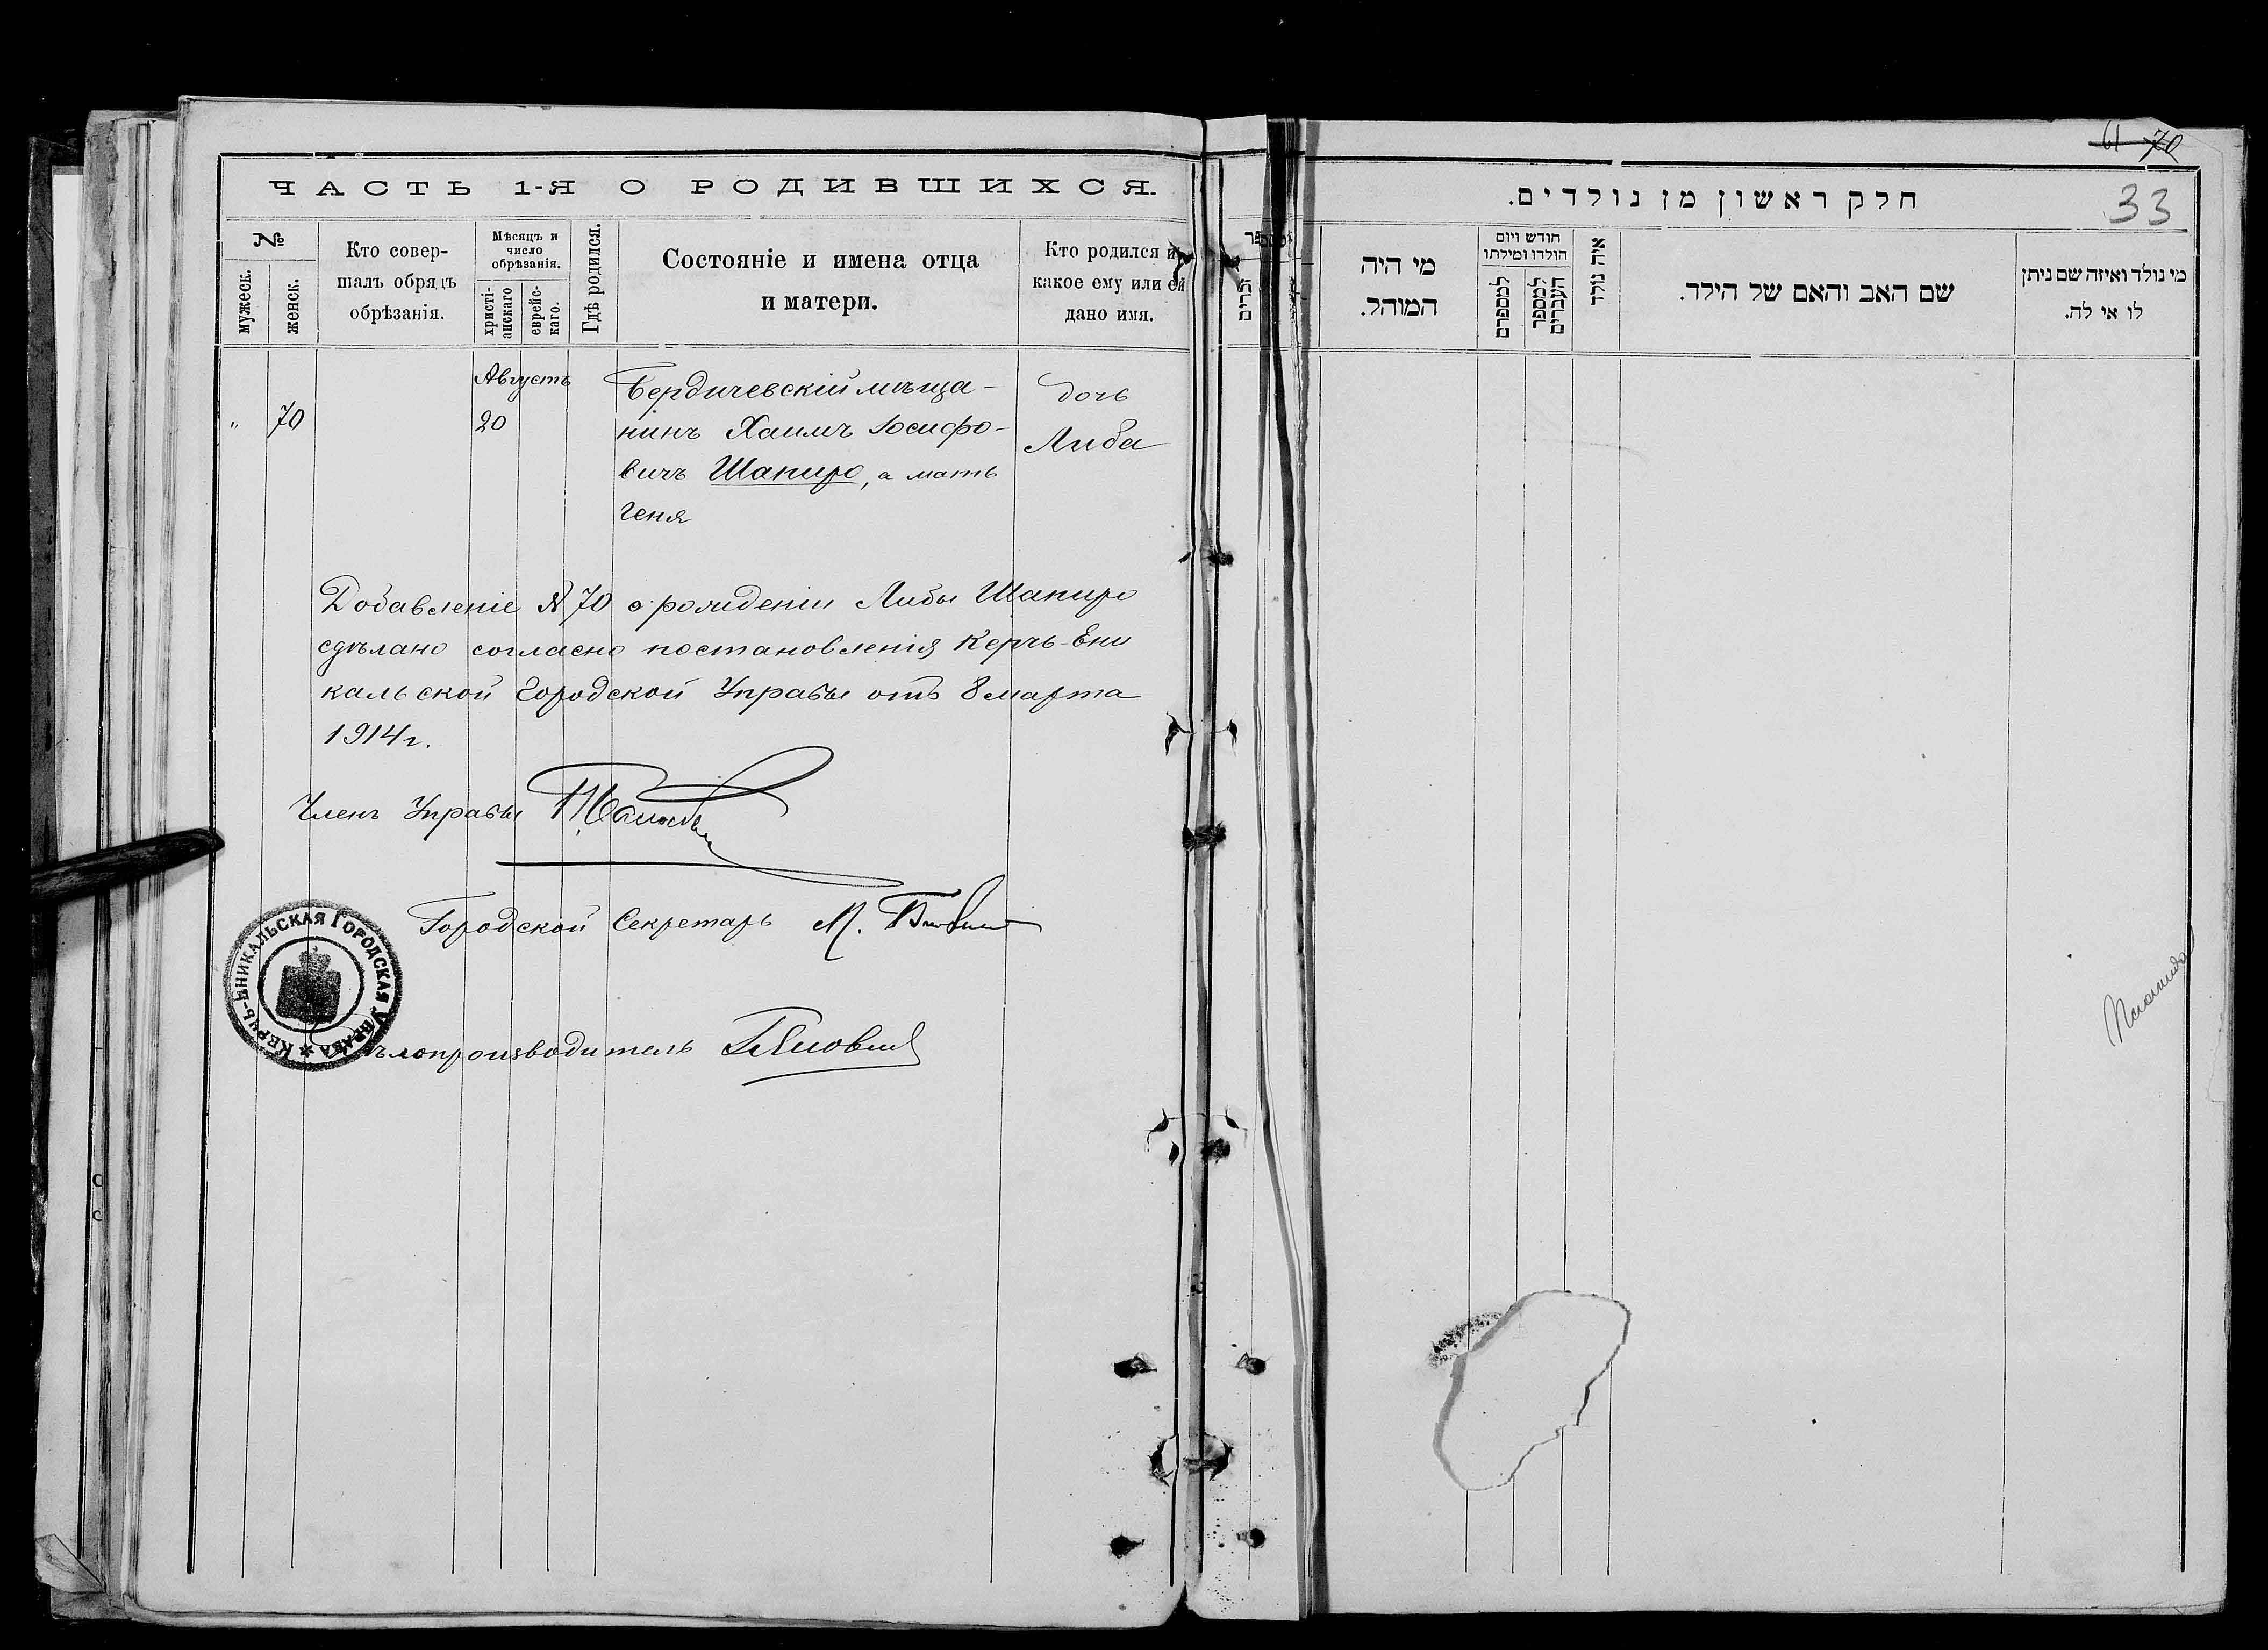 ЧАСТЬ 1-Я О РОДИВШИХСЯ.
№
мужеск.
женск.
Кто совер-
шалъ обрядъ
обрѣзанія.
Мѣсяцъ и
число
обрѣзанія.
христі-
анскаго
еврейс-
каго.
Гдѣ родился.
Состояніе и имена отца
и матери.
Кто родился и
какое ему или ей
дано имя.
„ 70
Августъ
20
Бердичевскій мѣща-
нинъ Хаимъ Іосифо-
вичъ Шапиро, а мать
Геня
дочь
Либа
Добавленіе № 70 о рожденіи Либы Шапиро
сдѣлано согласно постановленія Керчь-Ени
кальской Городской Управы отъ 8 марта
1914 г.
Членъ Управы
Городской Секретарь М.
ѣлопроизводитель
КЕРЧЬ-ЕНИКАЛЬСКАЯ ГОРОДСКАЯ УПРАВА
61 70
33
חלק ראשון מן נולדים.
מי היה
המוהל.
חודש ויום
הולדו ומילתו
למספרם
למספר
העברים
איה נולד
שם האב והאם של הילד.
מי נולד ואיזה שם ניתן
לו אי לה.